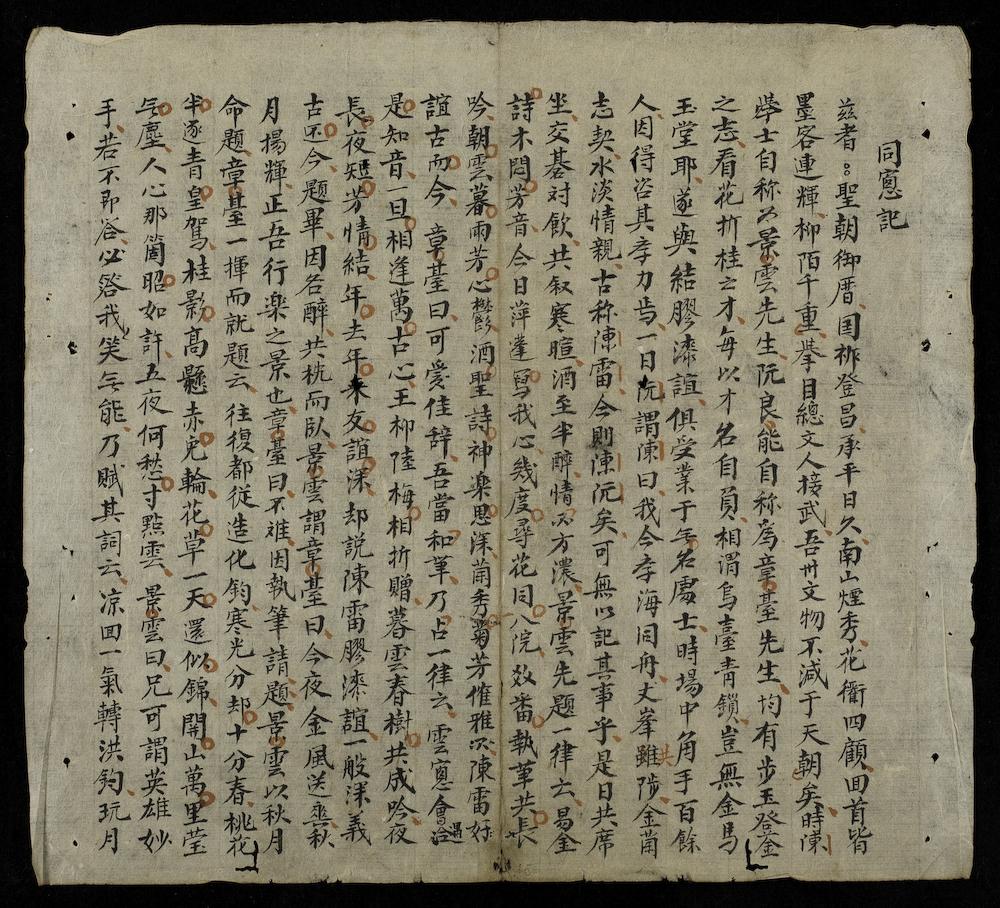 同窻記
兹者聖朝御厝国祚登昌承平日久南山煙秀花衢四顧囬首皆
墨客連輝柳陌千重擧目總文人接武吾卅文物不减于天朝矣時陳
斈士自称为景雲先生阮良能自称為章臺先生均有步玉登金
之志看花折桂之才每以才名自負相渭烏臺青鎖豈無金馬
玉堂耶遂與結膠漆誼俱受業于年名處士時場中角手百餘
人因得咨其孝力焉一日阮謂陳曰我今孝海同舟丈峯共雖陟金蘭
志契水淡情親古称陳雷今則陳沅矣可無以記其事乎是日共席
坐交碁对飲共叙寒暄酒至半醉情方濃景雲先题一律云易金
詩木閟芳音今日萍逢寫我心幾度尋花同八院效番執茟共長
吟朝雲暮雨芳心欝酒聖詩神楽思深蘭秀菊芳催雅次陳雷好
誼古而今章臺曰可爱佳辞吾當和茟乃占一律云雲窻會洽遇
是知音一旦相逢萬古心王柳陸梅相折贈暮雲春樹共成吟夜
長夜短芳情結年去年来友誼深却説陳雷膠漆誼一般深義
古不今题畢因各醉共枕而臥景雲謂章臺曰今夜金風送爽秋
月揚輝正吾行楽之景也章臺曰不难因執筆請題景雲以秋月
命题章臺一揮而就題云往復都従造化鈞寒光分却十分春桃花
半逐青皇駕桂影高懸赤兎輪花草一天還似錦開山萬里莹
无塵人心那箇昭如許五夜何愁寸點雲景雲曰兄可謂英雄妙
手若不即答必咎我笑无能乃賦其詞云凉囬一氣轉洪鈞玩月